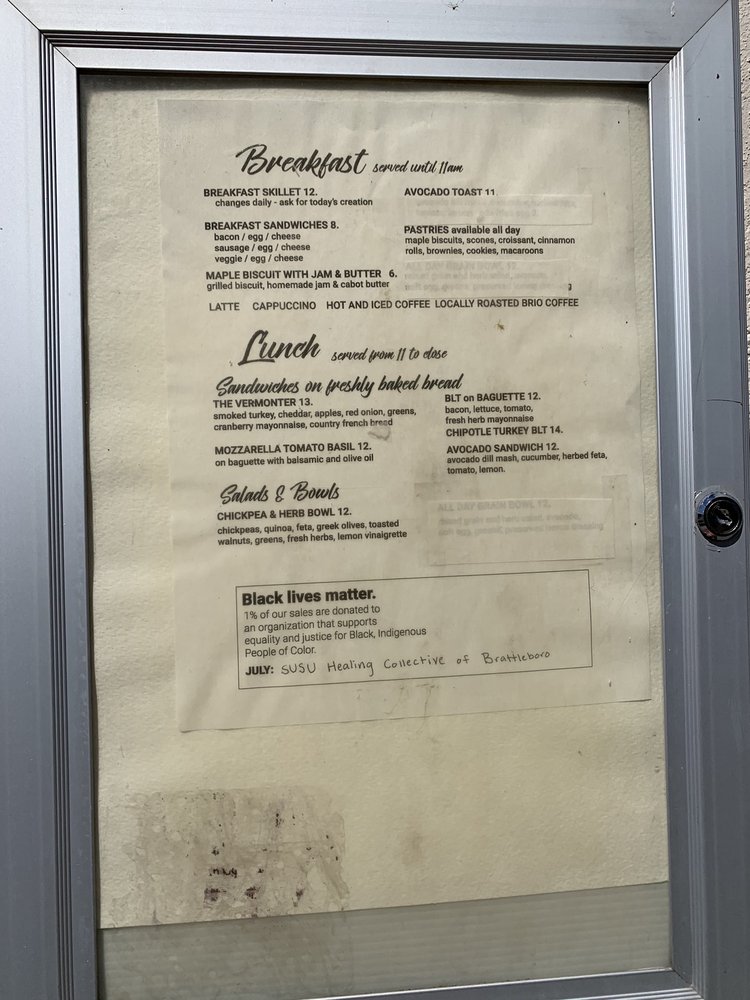 Breakfast served until 11am
BREAKFAST SKILLET 12.
changes daily - ask for today's creation
BREAKFAST SANDWICHES 8.
bacon / egg / cheese
sausage / egg / cheese
veggie / egg / cheese
MAPLE BISCUIT WITH JAM & BUTTER 6.
grilled biscuit, homemade jam & cabot butter
AVOCADO TOAST 11.
PASTRIES available all day
maple biscuits, scones, croissant, cinnamon
rolls, brownies, cookies, macaroons
ALL DAY GRAIN BOWL 12.
LATTE CAPPUCCINO HOT AND ICED COFFEE LOCALLY ROASTED BRIO COFFEE
Lunch served from 11 to close
Sandwiches on freshly baked bread
THE VERMONTER 13.
smoked turkey, cheddar, apples, red onion, greens,
cranberry mayonnaise, country french bread
MOZZARELLA TOMATO BASIL 12.
on baguette with balsamic and olive oil
BLT on BAGUETTE 12.
bacon, lettuce, tomato,
fresh herb mayonnaise
CHIPOTLE TURKEY BLT 14.
AVOCADO SANDWICH 12.
avocado dill mash, cucumber, herbed feta,
tomato, lemon.
Salads & Bowls
CHICKPEA & HERB BOWL 12.
chickpeas, quinoa, feta, greek olives, toasted
walnuts, greens, fresh herbs, lemon vinaigrette
ALL DAY GRAIN BOWL 12.
Black lives matter.
1% of our sales are donated to
an organization that supports
equality and justice for Black, Indigenous
People of Color.
JULY: SUSU Healing Collective of Brattleboro